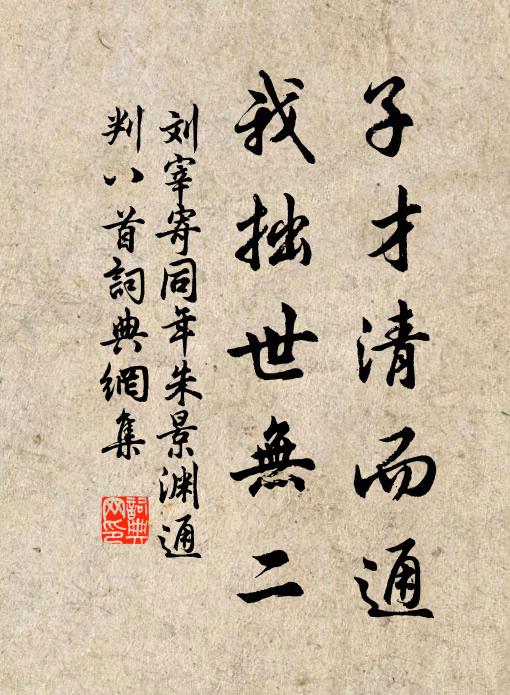 子才清而通
我拙世無二
刘宰寄同年朱景渊通
判八首詞典網集
詞典
网印